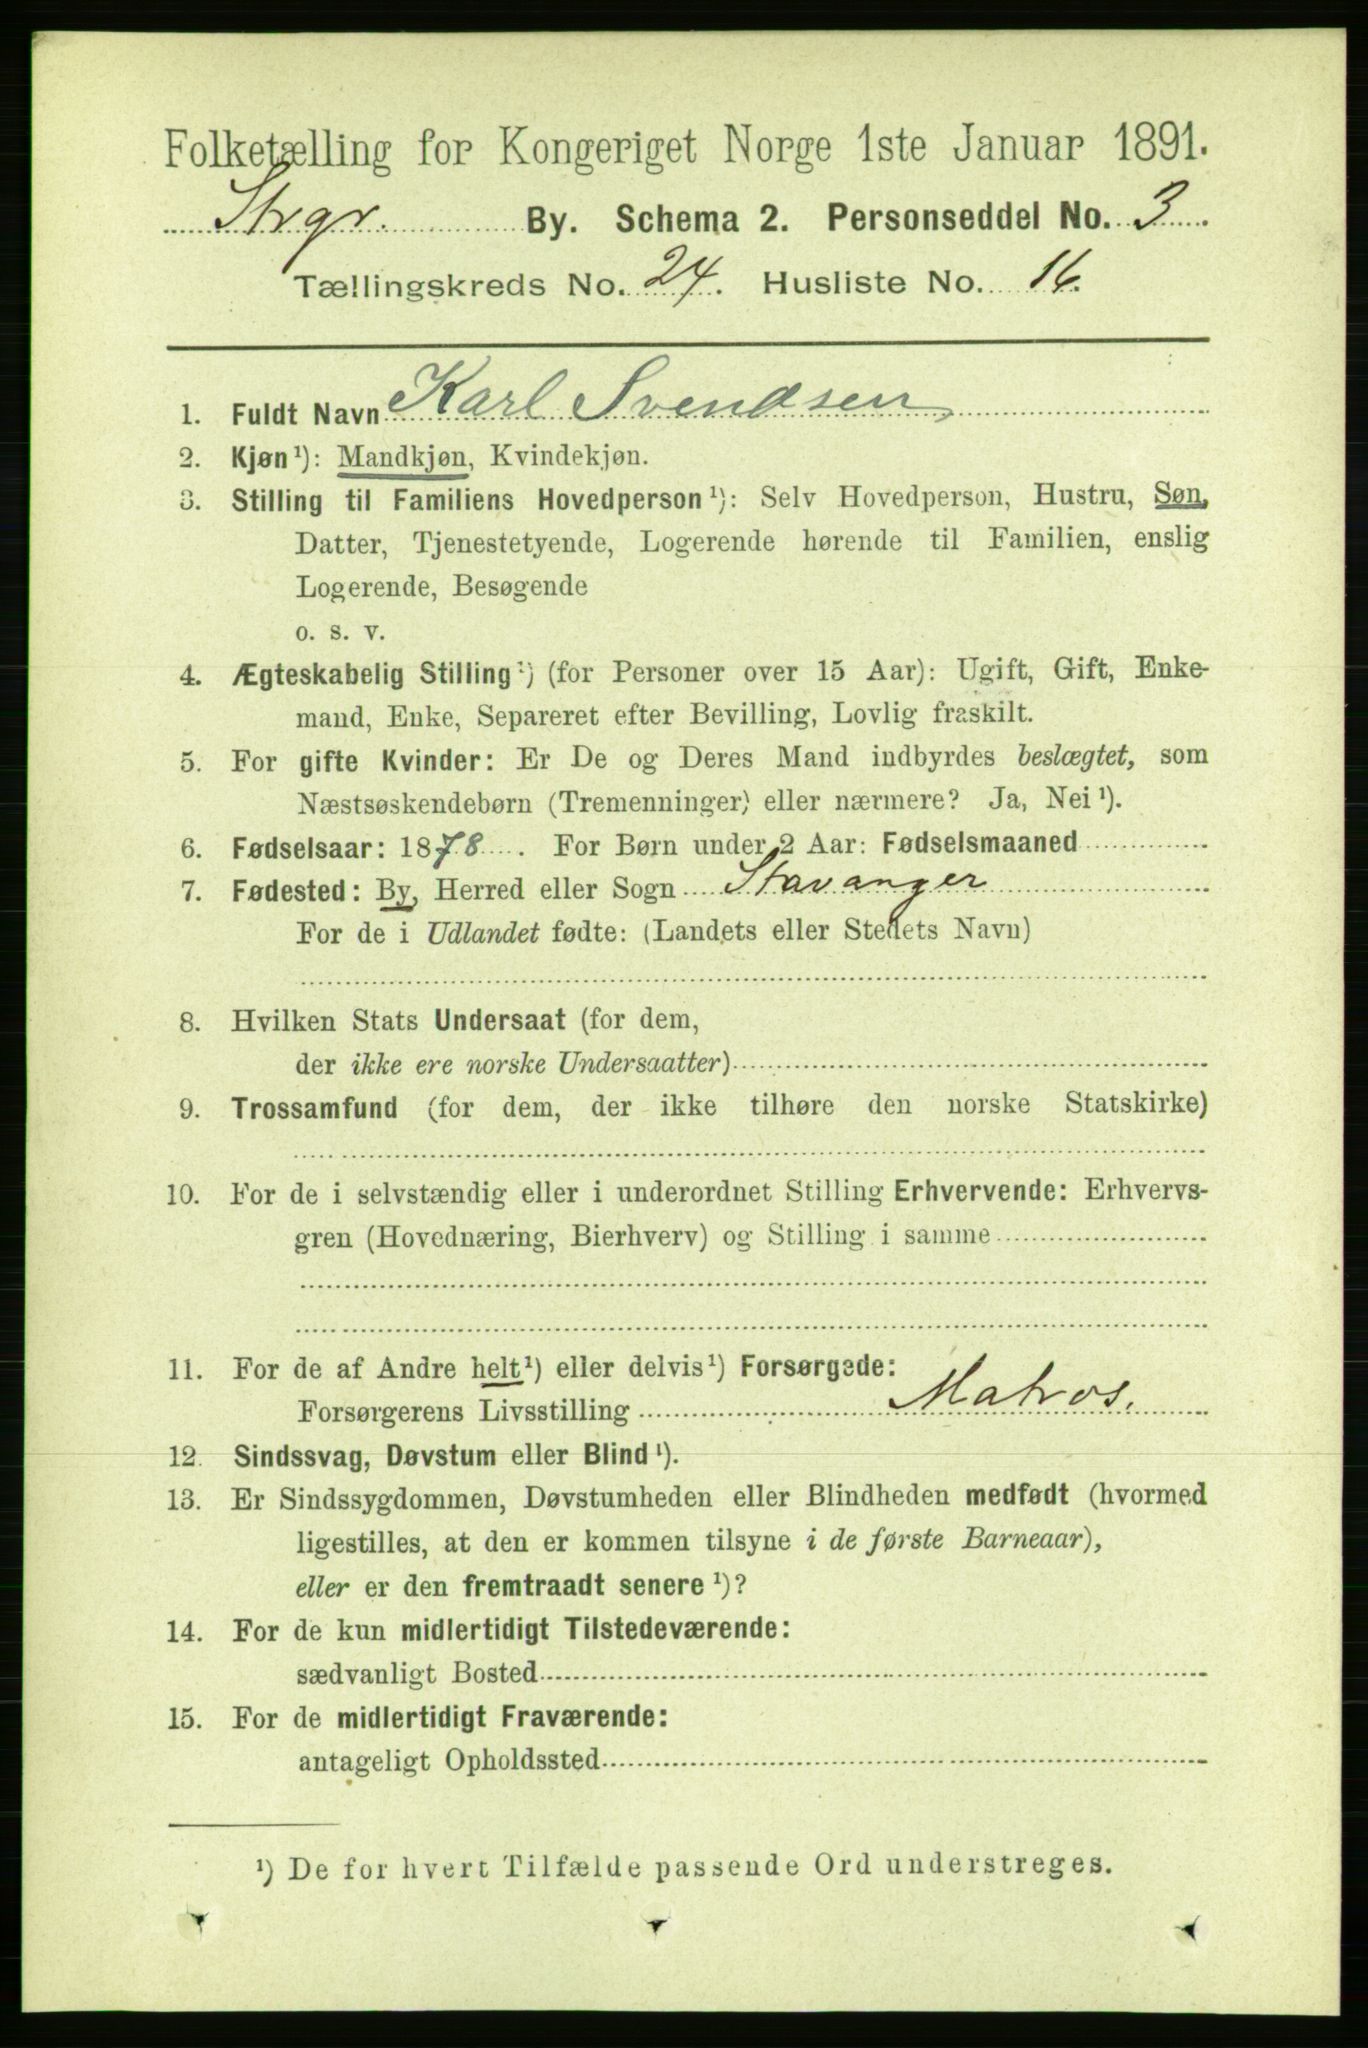 Folketælling for Kongeriget Norge 1ste Januar 1891.
Strgr. By. Schema 2. Personseddel No. 3
Tællingskreds No. 24. Husliste No. 16.
1. Fuldt Navn Karl Svendsen,
2. Kjøn ¹): Mandkjøn, Kvindekjøn.
3. Stilling til Familiens Hovedperson ¹): Selv Hovedperson, Hustru, Søn,
Datter, Tjenestetyende, Logerende hørende til Familien, enslig
Logerende, Besøgende
o. s. v.
4. Ægteskabelig Stilling ¹) (for Personer over 15 Aar): Ugift, Gift, Enke-
mand, Enke, Separeret efter Bevilling, Lovlig fraskilt.
5. For gifte Kvinder: Er De og Deres Mand indbyrdes beslægtet, som
Næstsøskendebørn (Tremenninger) eller nærmere? Ja, Nei ¹).
6. Fødselsaar: 1878. For Børn under 2 Aar: Fødselsmaaned
7. Fødested: By, Herred eller Sogn Stavanger
For de i Udlandet fødte: (Landets eller Stedets Navn)
8. Hvilken Stats Undersaat (for dem,
der ikke ere norske Undersaatter)
9. Trossamfund (for dem, der ikke tilhøre den norske Statskirke)
10. For de i selvstændig eller i underordnet Stilling Erhvervende: Erhvervs-
gren (Hovednæring, Bierhverv) og Stilling i samme
11. For de af Andre helt ¹) eller delvis ¹) Forsørgede:
Forsørgerens Livsstilling Matros.
12. Sindssvag, Døvstum eller Blind ¹).
13. Er Sindssygdommen, Døvstumheden eller Blindheden medfødt (hvormed
ligestilles, at den er kommen tilsyne i de første Barneaar),
eller er den fremtraadt senere ¹)?
14. For de kun midlertidigt Tilstedeværende:
sædvanligt Bosted
15. For de midlertidigt Fraværende:
antageligt Opholdssted
¹) De for hvert Tilfælde passende Ord understreges.